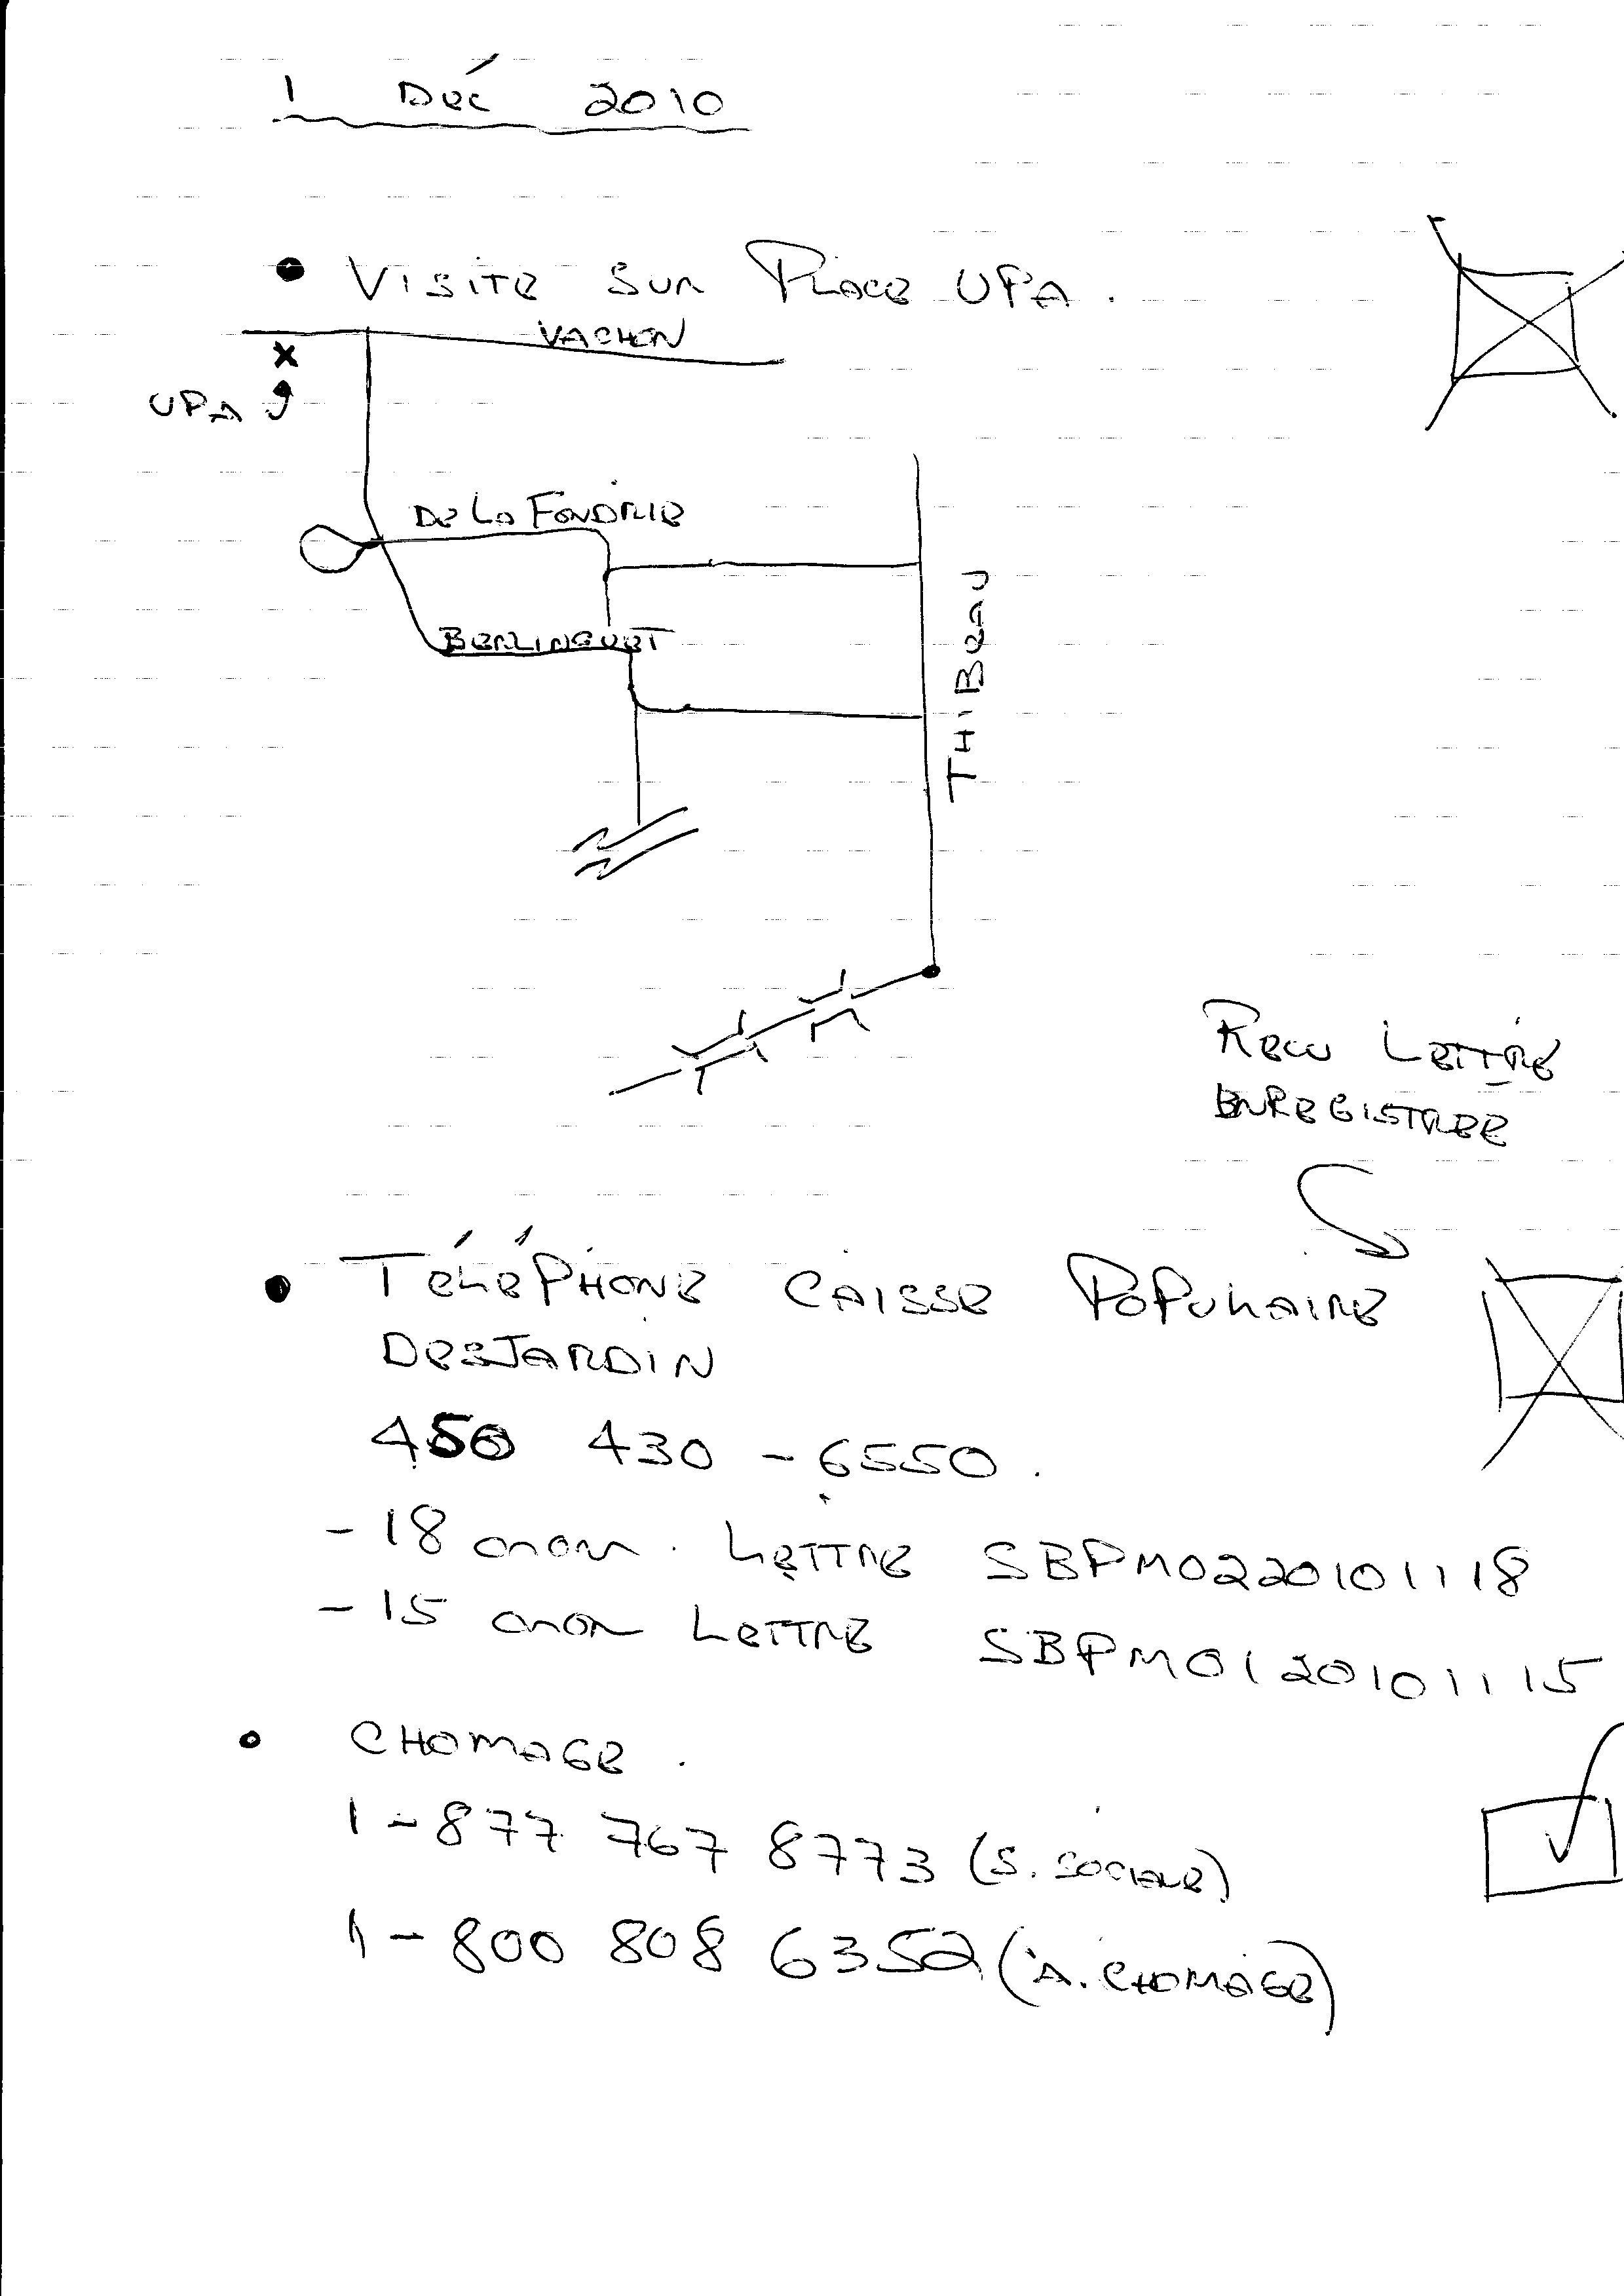 1 Déc 2010
• Visite sur Place UPA.
VACHON
UPA
De La Fondrie
BERLINGUET
THIBEAU
Recu Lettre
Enregistree
• Téléphone Caisse Populaire
Desjardin
450 430-6550.
- 18 Lettre SBPM0220101118
- 15 Lettre SBPM0120101115
• Chomage.
1-877 767 8773 (S. Sociale)
1-800 808 6352 (A. Chomage)